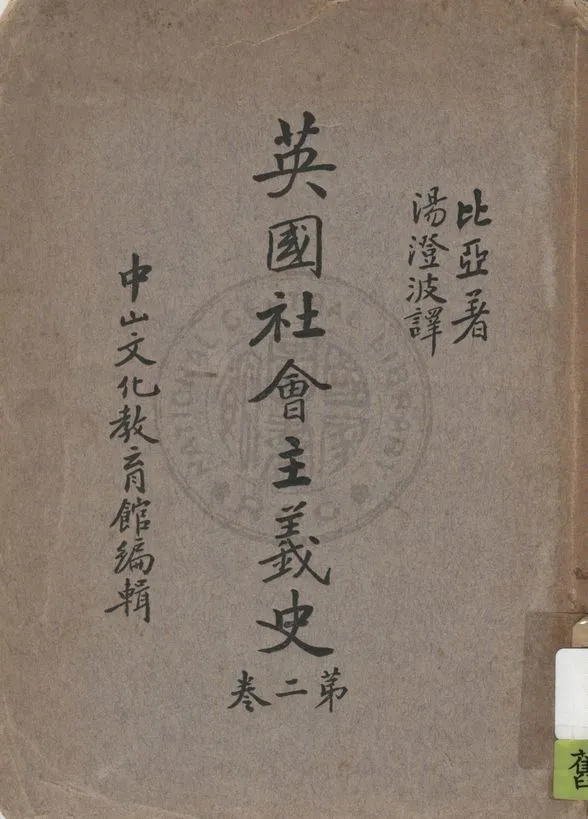 比亞著
湯澄波譯
英國社會主義史
第二卷
中山文化教育館編輯
舊